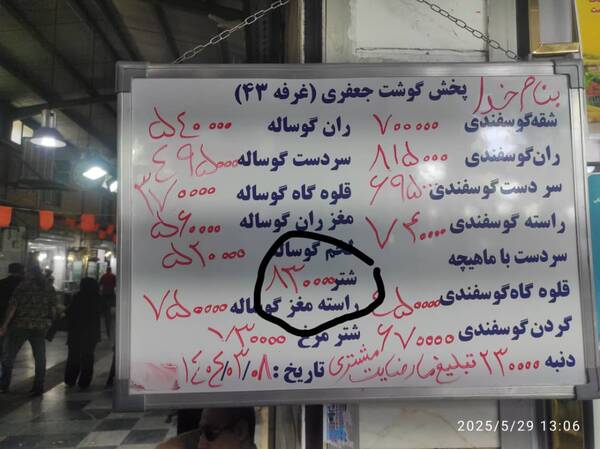 بنام خدا پخش گوشت جعفری (غرفه ۴۳)
شقه گوسفندی ۷۰۰۰۰۰ ران گوساله ۵۴۰۰۰۰
ران گوسفندی ۸۱۵۰۰۰ سردست گوساله ۴۹۵۰۰۰
سر دست گوسفندی ۶۹۵۰۰۰ قلوه گاه گوساله ۳۷۰۰۰۰
راسته گوسفندی ۷۴۰۰۰۰ مغز ران گوساله ۵۶۰۰۰۰
سردست با ماهیچه گوساله ۵۲۰۰۰۰
شتر ۸۳۰۰۰۰
قلوه گاه گوسفندی راسته مغز گوساله ۷۵۰۰۰۰
گردن گوسفندی ۶۷۰۰۰۰ شتر مرغ ۷۳۰۰۰۰
دنبه ۲۳۰۰۰۰ تبلیغ ما رضایت مشتری تاریخ : ۱۴۰۴/۰۳/۰۸
2025/5/29 13:06